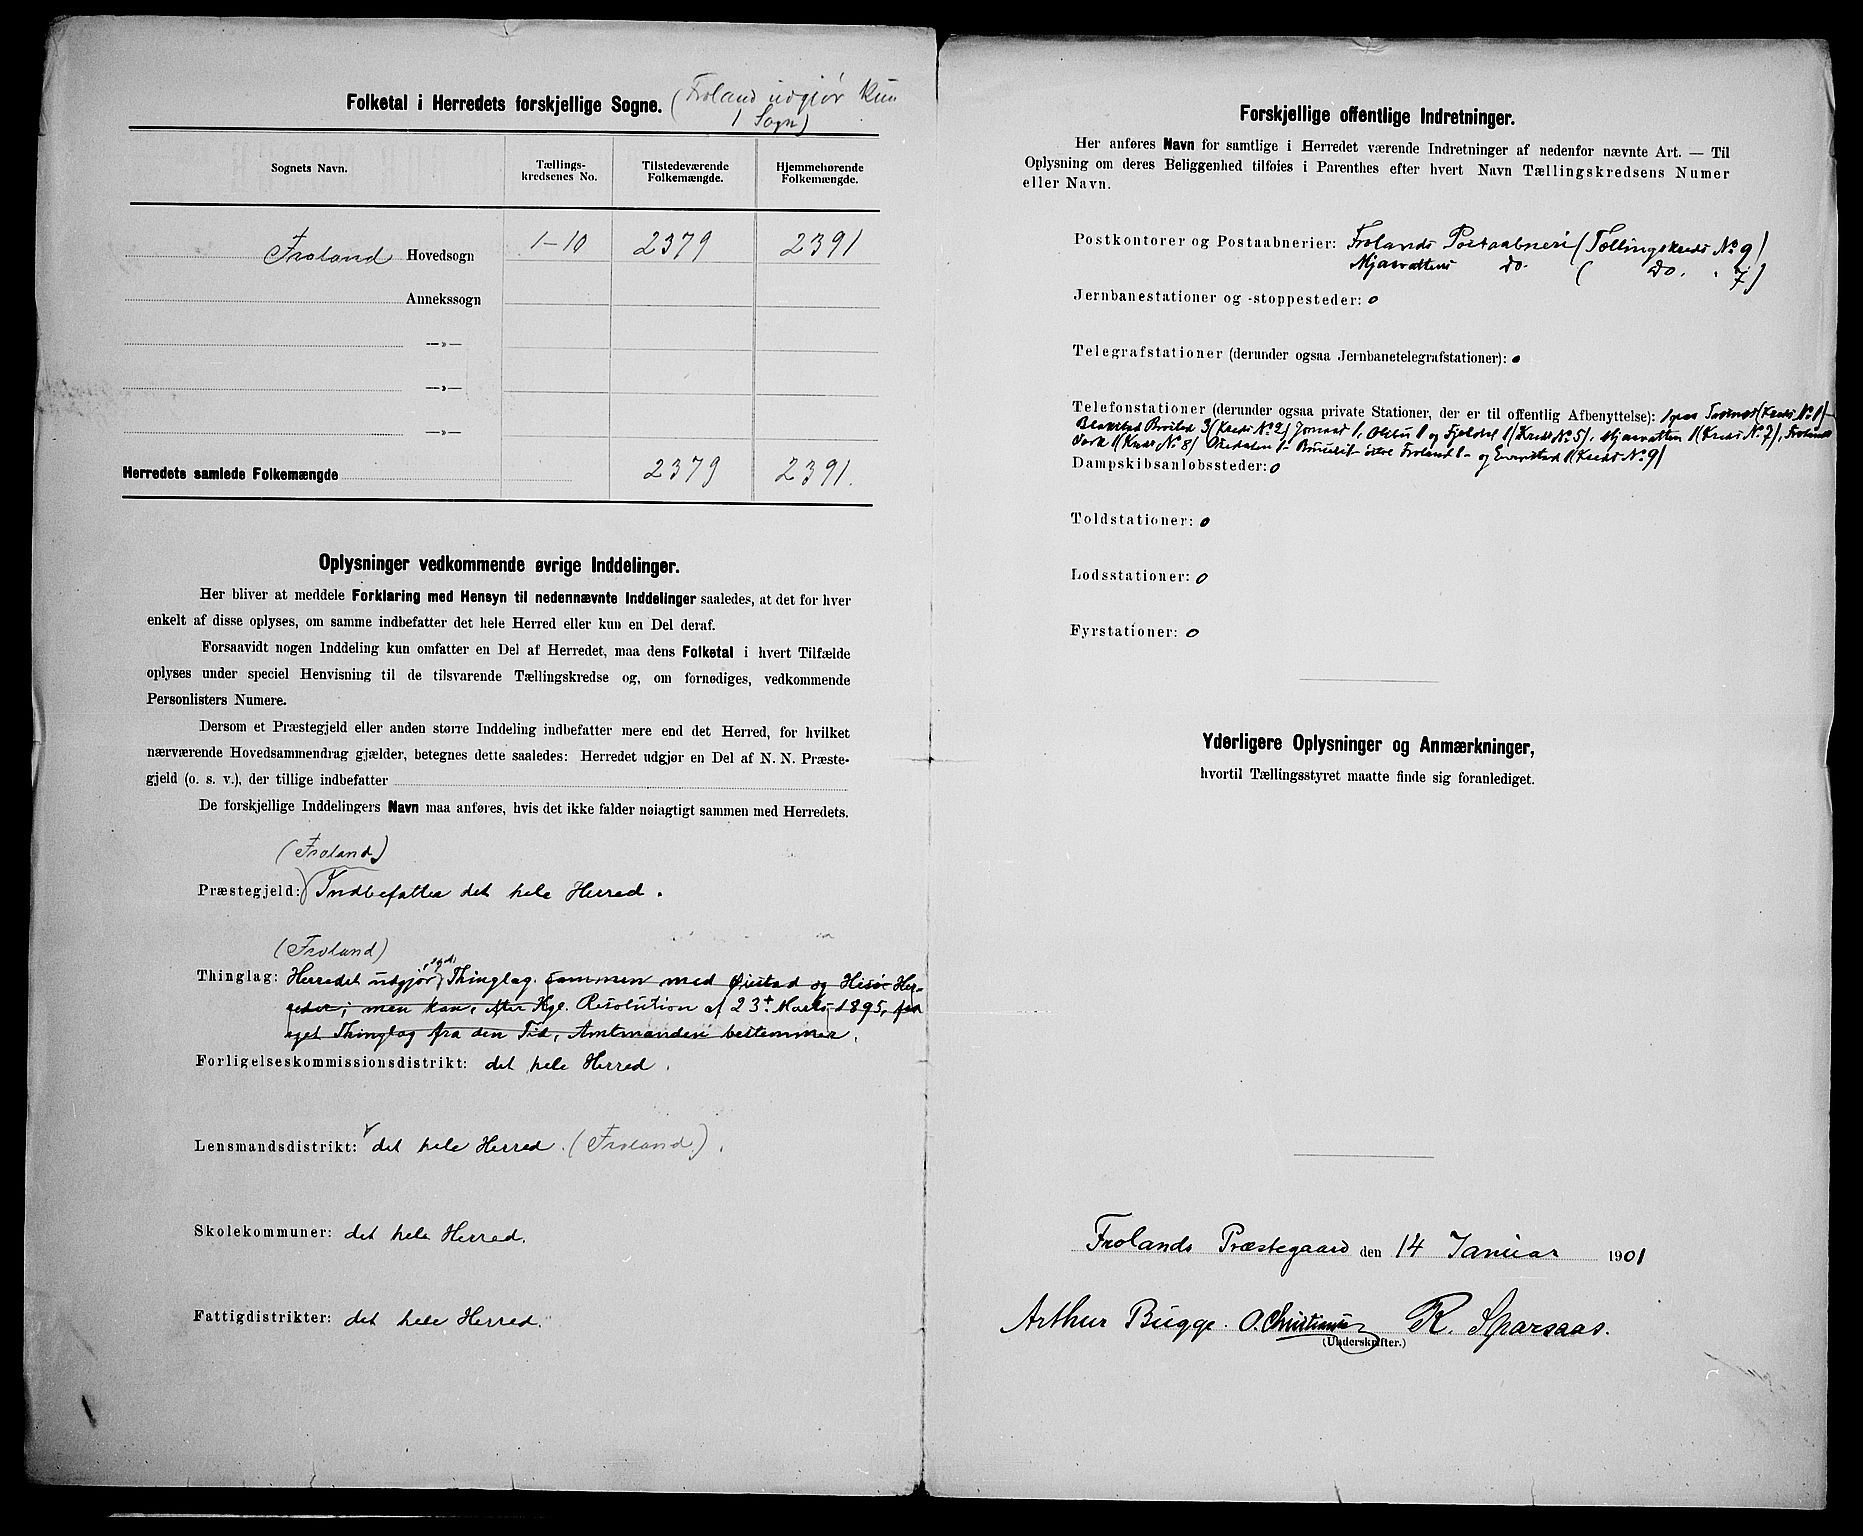 Folketal i Herredets forskjellige Sogne. (Froland udgjør kun
1 Sogn)
Sognets Navn.
Tællings-
kredsenes No.
Tilstedeværende
Folkemængde.
Hjemmehørende
Folkemængde.
Froland Hovedsogn 1-10 2379 2391
Annekssogn
—»—
—»—
—»—
Herredets samlede Folkemængde 2379 2391.
Oplysninger vedkommende øvrige Inddelinger.
Her bliver at meddele Forklaring med Hensyn til nedennævnte Inddelinger saaledes, at det for hver
enkelt af disse oplyses, om samme indbefatter det hele Herred eller kun en Del deraf.
Forsaavidt nogen Inddeling kun omfatter en Del af Herredet, maa dens Folketal i hvert Tilfælde
oplyses under speciel Henvisning til de tilsvarende Tællingskredse og, om fornødiges, vedkommende
Personlisters Numere.
Dersom et Præstegjeld eller anden større Inddeling indbefatter mere end det Herred, for hvilket
nærværende Hovedsammendrag gjælder, betegnes dette saaledes: Herredet udgjør en Del af N. N. Præste-
gjeld (o. s. v.), der tillige indbefatter
De forskjellige Inddelingers Navn maa anføres, hvis det ikke falder nøiagtigt sammen med Herredets.
(Froland)
Præstegjeld: Indbefatter det hele Herred.
(Froland)
Thinglag: Herredet udgjør eget Thinglag. sammen med Øiestad og Hisø Her-
reder; men kan, efter Kgl. Resolution af 23 Marts 1895, faa
eget Thinglag fra den Tid, Amtmanden bestemmer.
Forligelseskommissionsdistrikt: det hele Herred.
Lensmandsdistrikt: det hele Herred. (Froland).
Skolekommuner: det hele Herred.
Fattigdistrikter: det hele Herred.
Forskjellige offentlige Indretninger.
Her anføres Navn for samtlige i Herredet værende Indretninger af nedenfor nævnte Art. — Til
Oplysning om deres Beliggenhed tilføies i Parenthes efter hvert Navn Tællingskredsens Numer
eller Navn.
Postkontorer og Postaabnerier: Frolands Postaabneri (Tællingskreds No. 9)
Mjaavattens do. ( do. . 7)
Jernbanestationer og -stoppesteder: 0
Telegrafstationer (derunder ogsaa Jernbanetelegrafstationer): 0
Telefonstationer (derunder ogsaa private Stationer, der er til offentlig Afbenyttelse): (Kreds No. 1)
Blakstad 3 (Kreds No. 2) 1, 1 og 1 (Kreds No. 5), Mjaavatten 1 (Kreds No. 7), Frolands
Værk 1 (Kreds No. 8) 1 - Froland 1 - og 1 (Kreds No. 9)
Dampskibsanløbssteder: 0
Toldstationer: 0
Lodsstationer: 0
Fyrstationer: 0
Yderligere Oplysninger og Anmærkninger,
hvortil Tællingsstyret maatte finde sig foranlediget.
Frolands Præstegaard den 14 Januar 1901
Arthur Bugge. O. Christiansen R. Sparsaas.
(Underskrifter.)